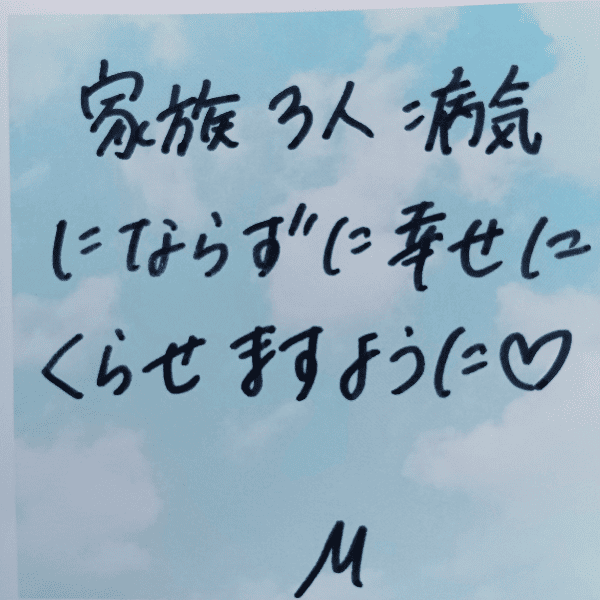 家族3人病気
にならずに幸せに
くらせますように♡
M